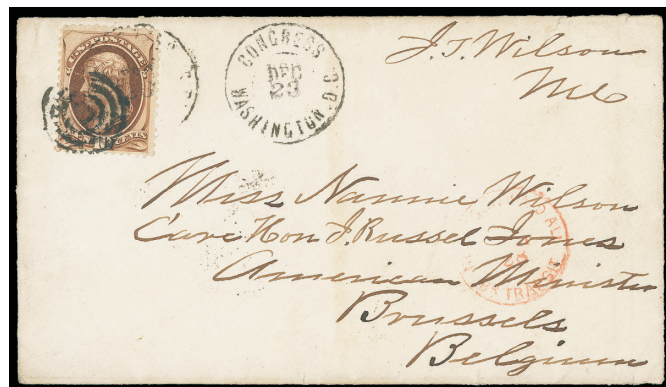 U.S. POSTAGE
CONGRESS
DEC
23
WASHINGTON D.C.
J. T. Wilson
M C
Miss Nannie Wilson
Care Hon J. Russel Jones
American Minister
Brussels
Belgium
TRANSIT